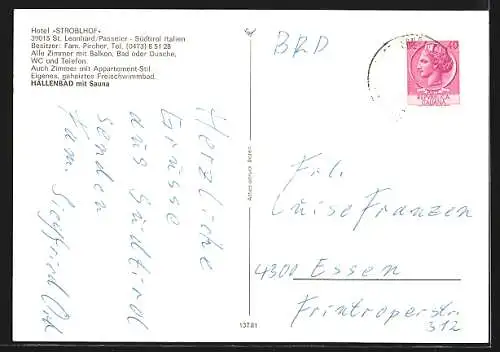 Hotel »STROBLHOF«
39015 St. Leonhard/Passeier - Südtirol Italien
Besitzer: Fam. Pircher, Tel. (0473) 8 51 28
Alle Zimmer mit Balkon, Bad oder Dusche,
WC und Telefon.
Auch Zimmer mit Appartement-Stil
Eigenes, geheiztes Freischwimmbad.
HALLENBAD mit Sauna
Herzliche
Grüsse
aus Südtirol
senden
Fam. Siegfried
137.81
BRD
40
ITALIANA
Frl.
Luise Franzen
4300 Essen
Frintroperstr.
312